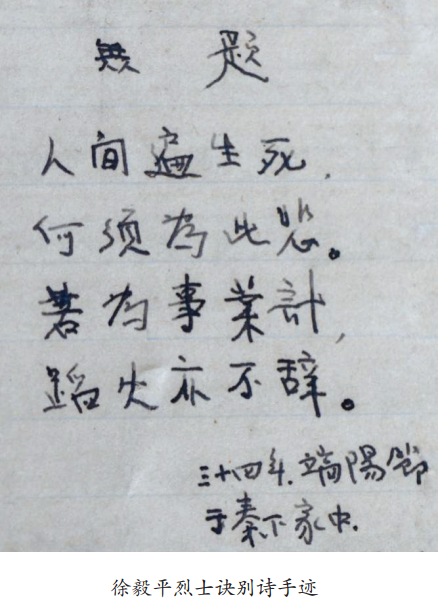 無題
人间遍生死，
何须為此悲。
若為事業計，
蹈火亦不辞。
三十四年．端陽節
于秦下家中．
徐毅平烈士诀别诗手迹